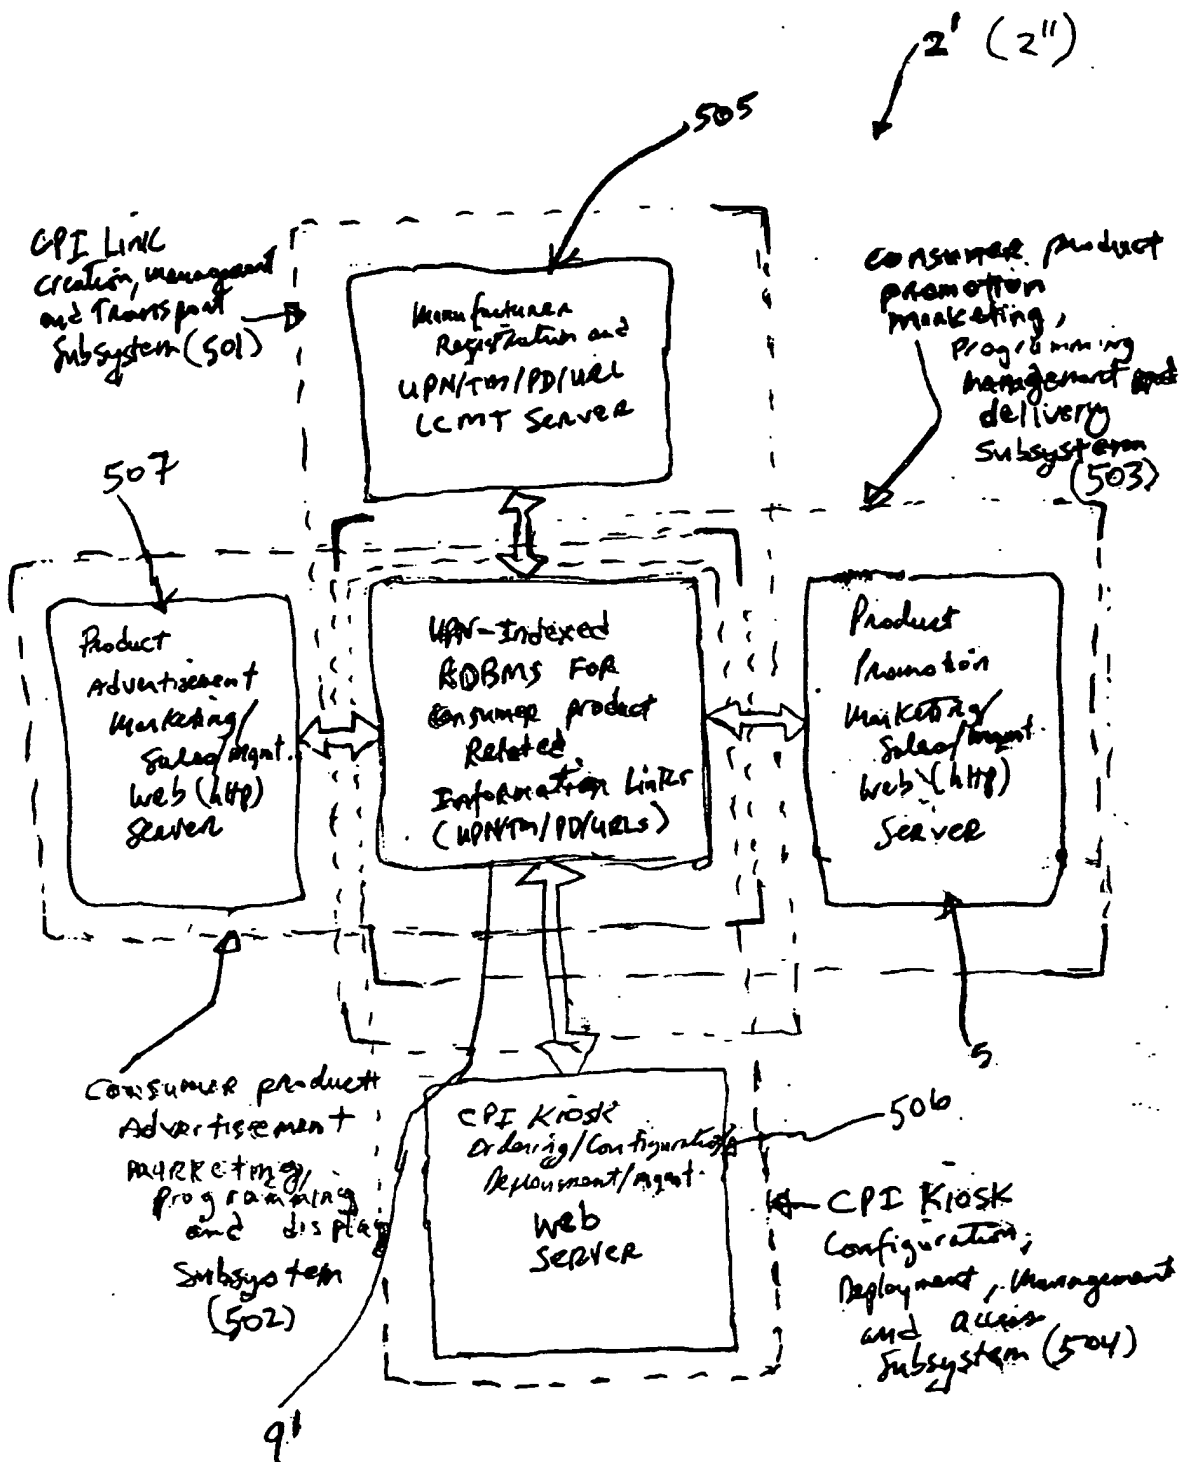 2' (2")
505
CPI Link
Creation, management
and Transport
Subsystem (501)
Consumer product
promotion
marketing,
Programming
management and
delivery
Subsystem
(503)
Manufacturer
Registration and
UPN/TM/PD/URL
LCMT Server
507
Product
Advertisement
Marketing/
Sales/Mgmt.
Web (http)
Server
UPN-Indexed
RDBMS FOR
Consumer product
Related
Information Links
(UPN/TM/PD/URLs)
Product
Promotion
Marketing/
Sales/Mgmt.
Web (http)
Server
5
Consumer product
Advertisement
Marketing,
programming
and display
Subsystem
(502)
CPI Kiosk
Ordering/Configuration/
Deployment/mgmt.
Web
Server
506
CPI Kiosk
Configuration,
Deployment, Management
and access
Subsystem (504)
9'